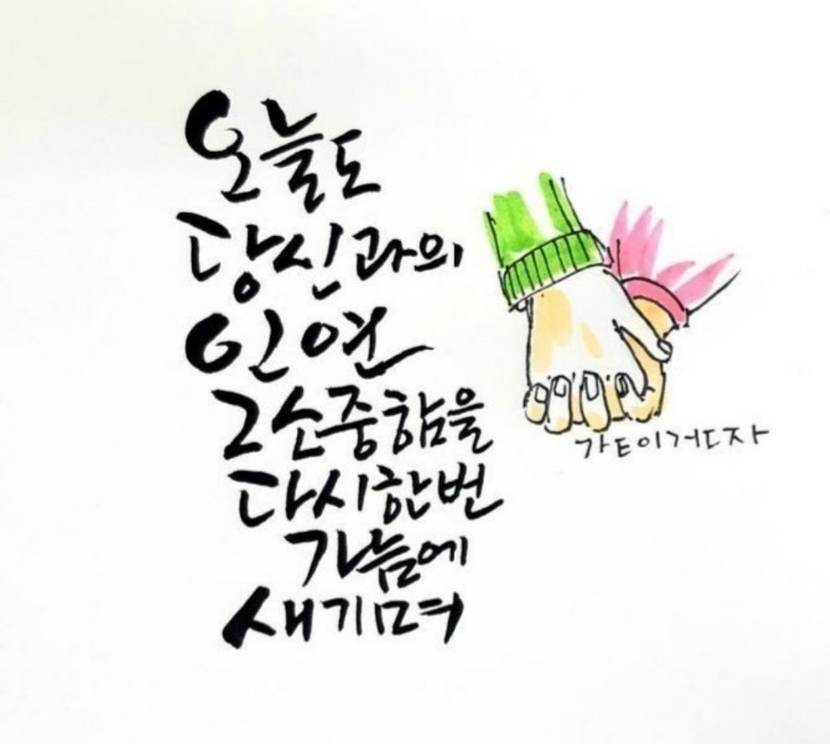 오늘도
당신과의
인연
그 소중함을
다시한번
가슴에
새기며
가ㅌ이거ㄷ자